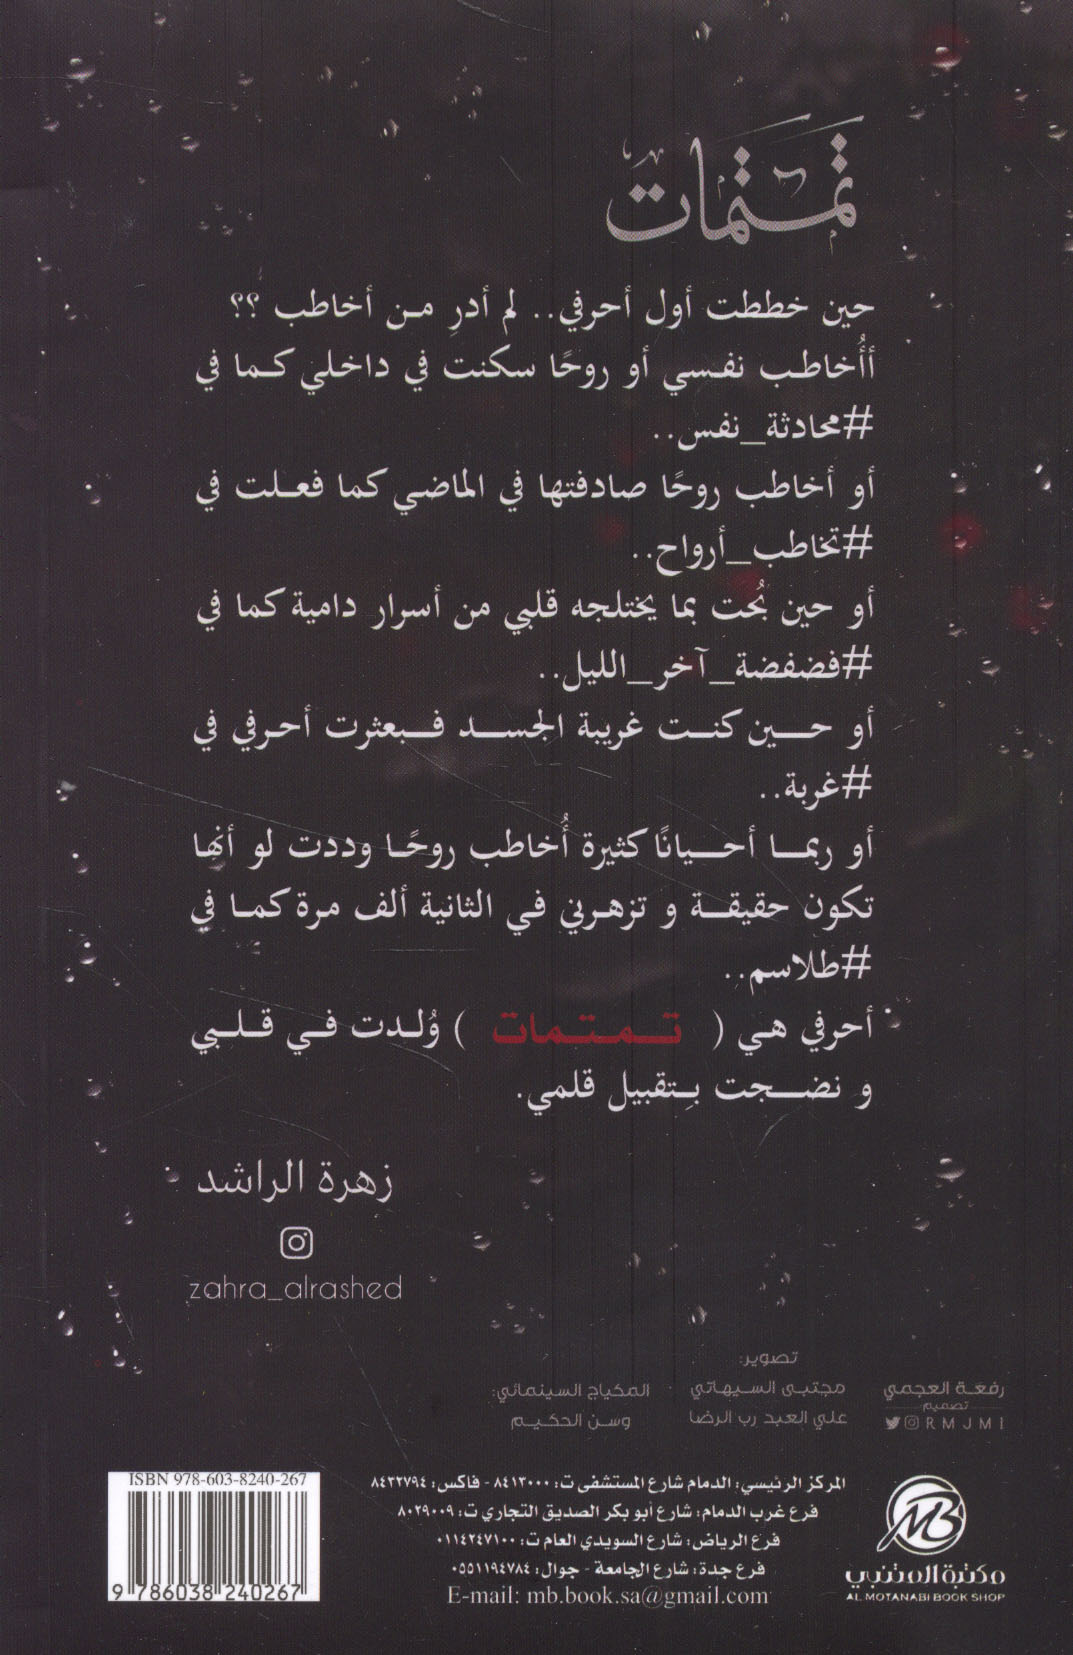 تمتمات
حين خططت أول أحرفي.. لم أدرِ من أخاطب ؟؟
أأُخاطب نفسي أو روحًا سكنت في داخلي كما في
#محادثة_نفس..
أو أخاطب روحًا صادفتها في الماضي كما فعلت في
#تخاطب_أرواح..
أو حين بُحت بما يختلجه قلبي من أسرار دامية كما في
#فضفضة_آخر_الليل..
أو حين كنت غريبة الجسد فبعثرت أحرفي في
#غربة..
أو ربما أحيانًا كثيرة أُخاطب روحًا وددت لو أنها
تكون حقيقة و تزهرني في الثانية ألف مرة كما في
#طلاسم..
أحرفي هي ( تمتمات ) وُلدت في قلبي
و نضجت بِتقبيل قلمي.
زهرة الراشد
zahra_alrashed
رفعة العجمي
تصميم
RMJMI
تصوير:
مجتبى السيهاتي
علي العبد رب الرضا
المكياج السينمائي:
وسن الحكيم
المركز الرئيسي: الدمام شارع المستشفى ت: ٨٤١٣٠٠٠ - فاكس: ٨٤٣٢٧٩٤
فرع غرب الدمام: شارع أبو بكر الصديق التجاري ت: ٨٠٢٩٠٠٩
فرع الرياض: شارع السويدي العام ت: ٠١١٤٢٤٧١٠٠
فرع جدة: شارع الجامعة - جوال: ٠٥٥١١٩٤٧٨٤
E-mail: mb.book.sa@gmail.com
MB
مكتبة المتنبي
AL MOTANABI BOOK SHOP
ISBN 978-603-8240-267
9 786038 240267